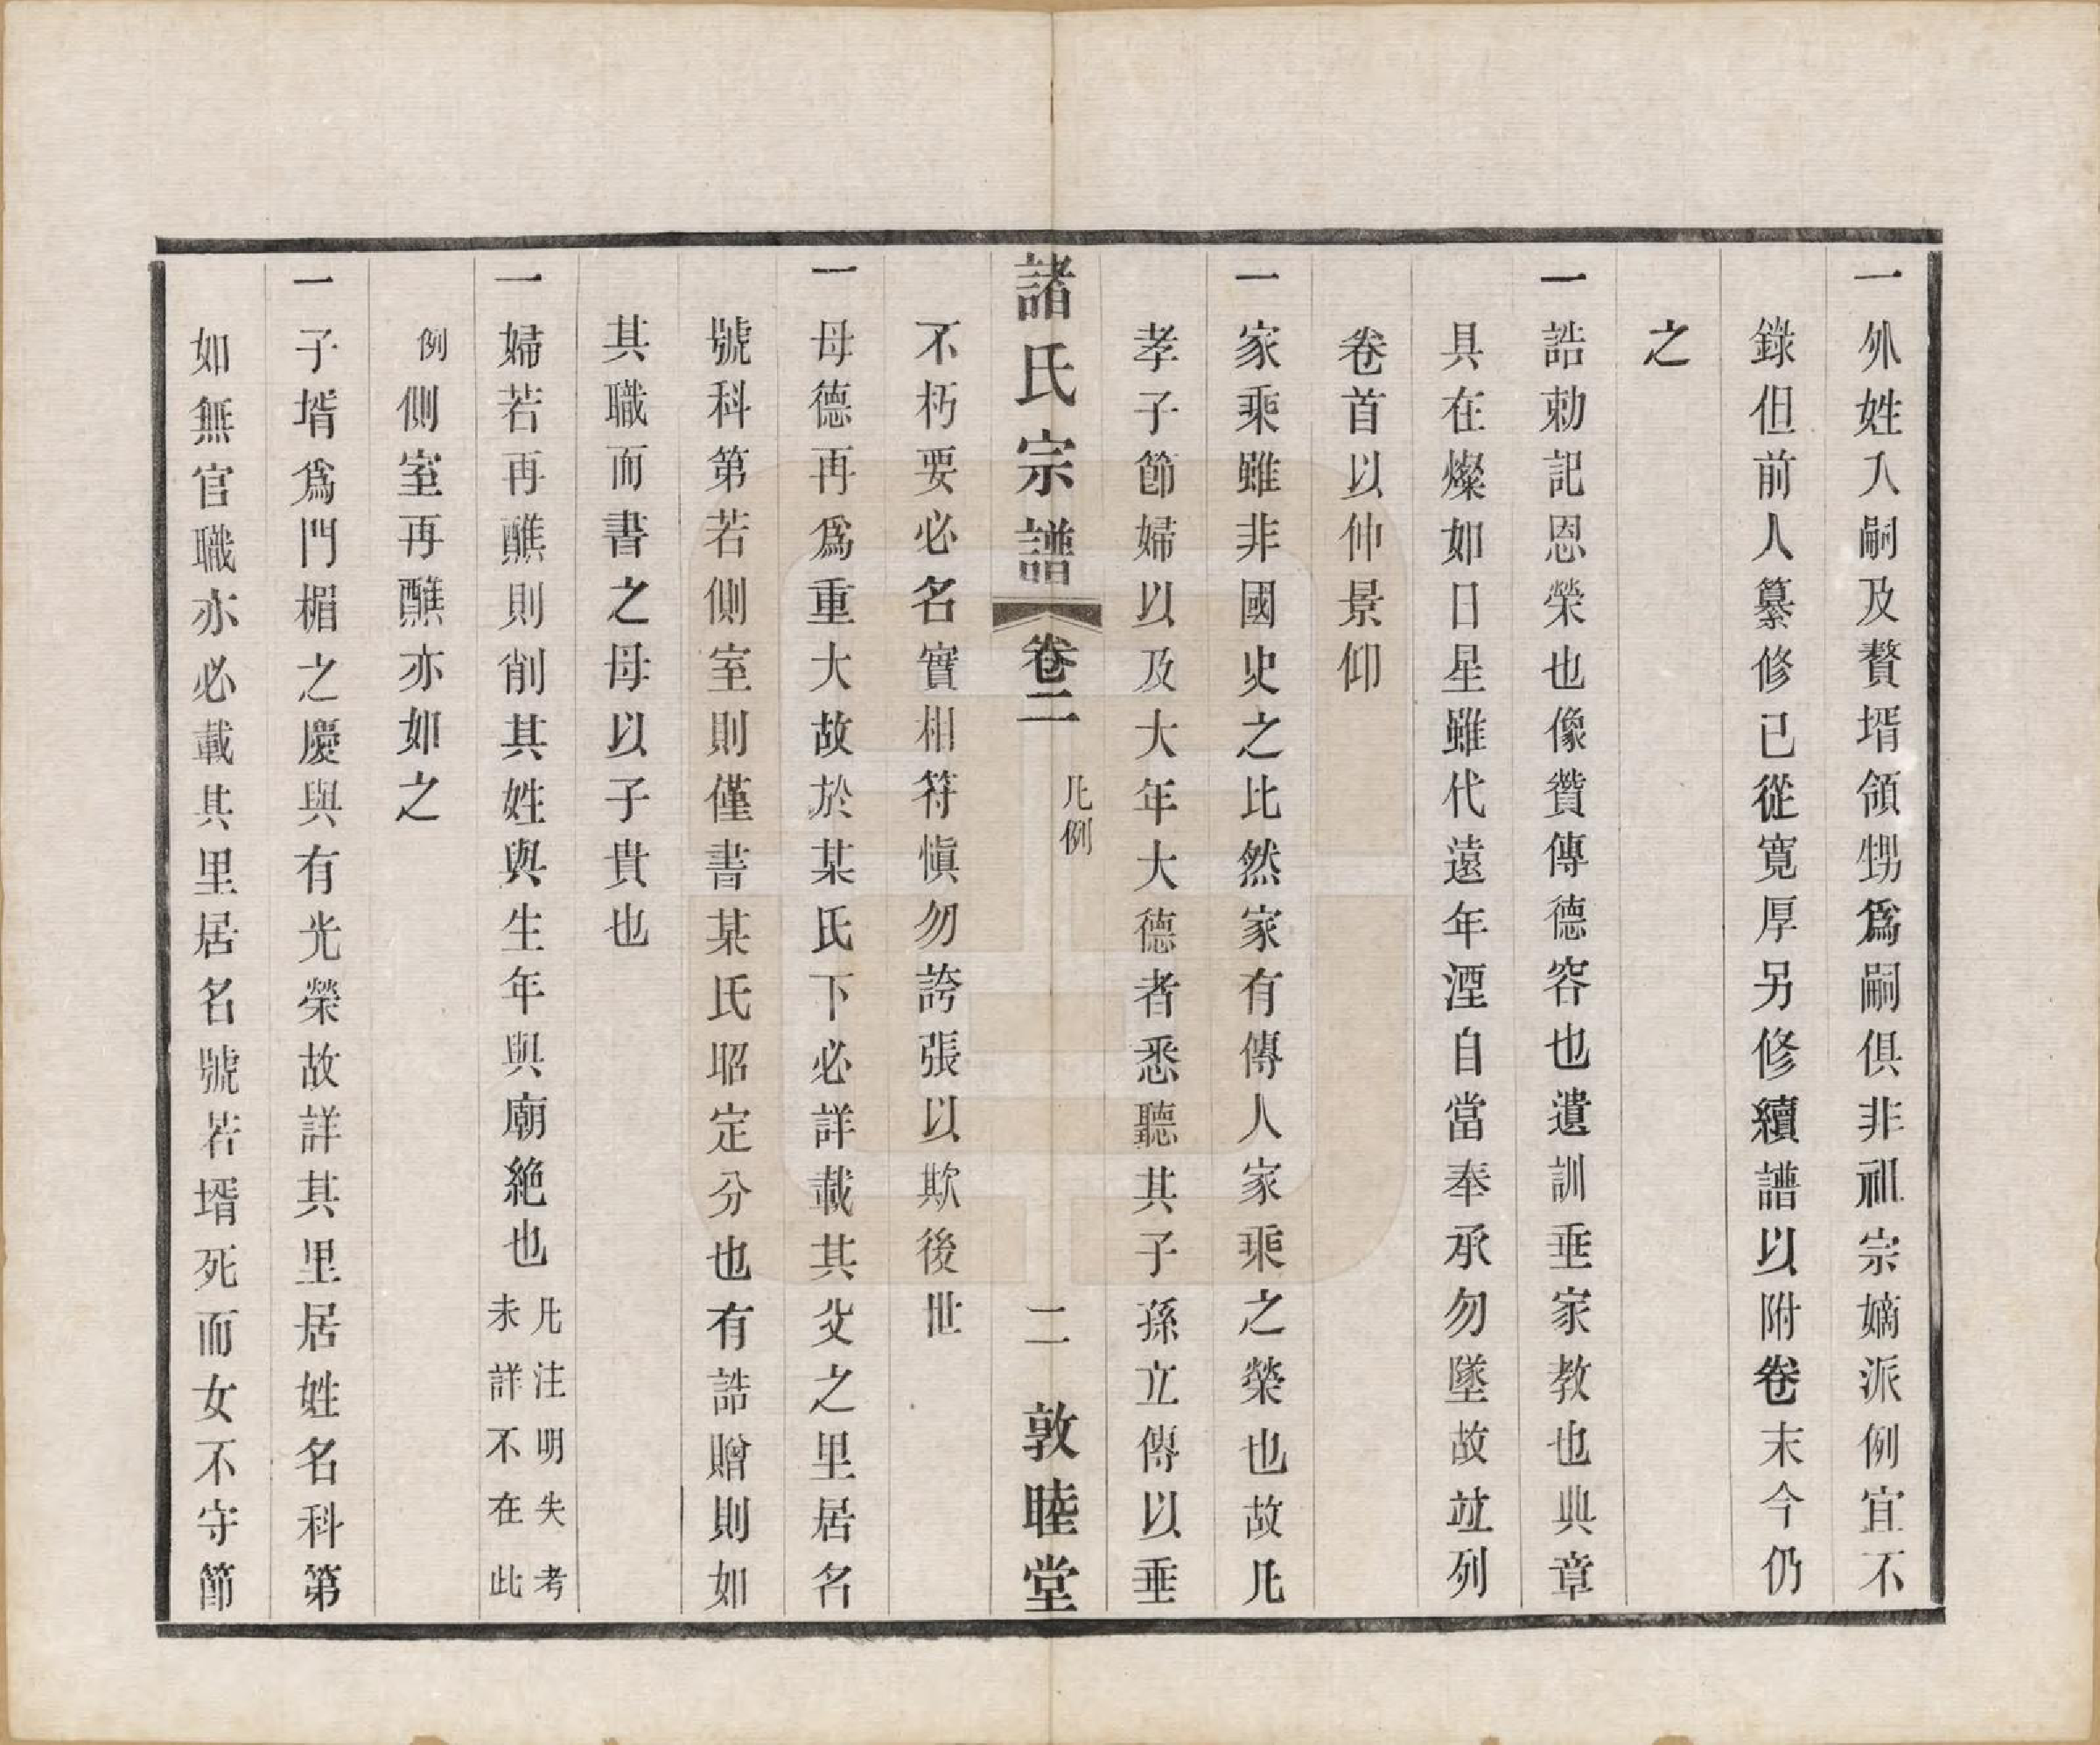 一外姓入嗣及贅壻領甥爲嗣俱非祖宗嫡派例宜不
錄但前人纂修已從寬厚另修續譜以附卷末今仍
之
一誥勅記恩榮也像贊傳德容也遺訓垂家教也典章
具在燦如日星雖代遠年湮自當奉承勿墜故竝列
卷首以伸景仰
一家乘雖非國史之比然家有傳人家乘之榮也故凡
孝子節婦以及大年大德者悉聽其子孫立傳以垂
諸氏宗譜 卷二 凡例 二 敦睦堂
不朽要必名實相符愼勿誇張以欺後世
一母德再爲重大故於某氏下必詳載其父之里居名
號科第若側室則僅書某氏昭定分也有誥贈則如
其職而書之母以子貴也
一婦若再醮則削其姓與生年與廟絶也凡注明失考未詳不在此
例側室再醮亦如之
一子壻爲門楣之慶與有光榮故詳其里居姓名科第
如無官職亦必載其里居名號若壻死而女不守節